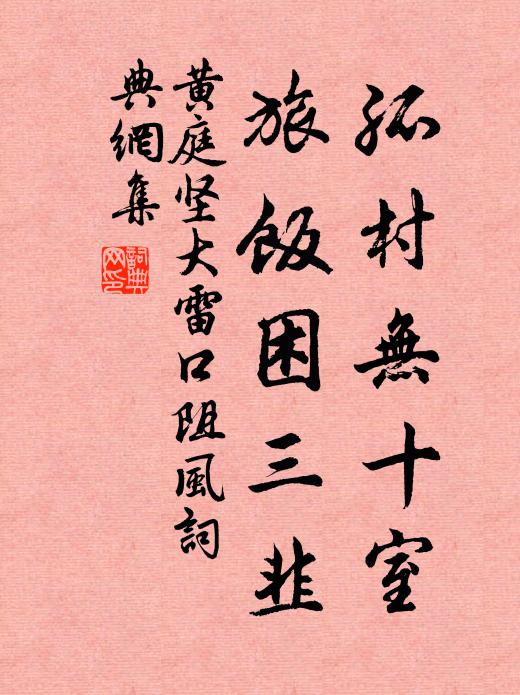 孤村無十室
旅飯困三韭
黄庭坚大雷口阻風詞
典網集
詞典
网印